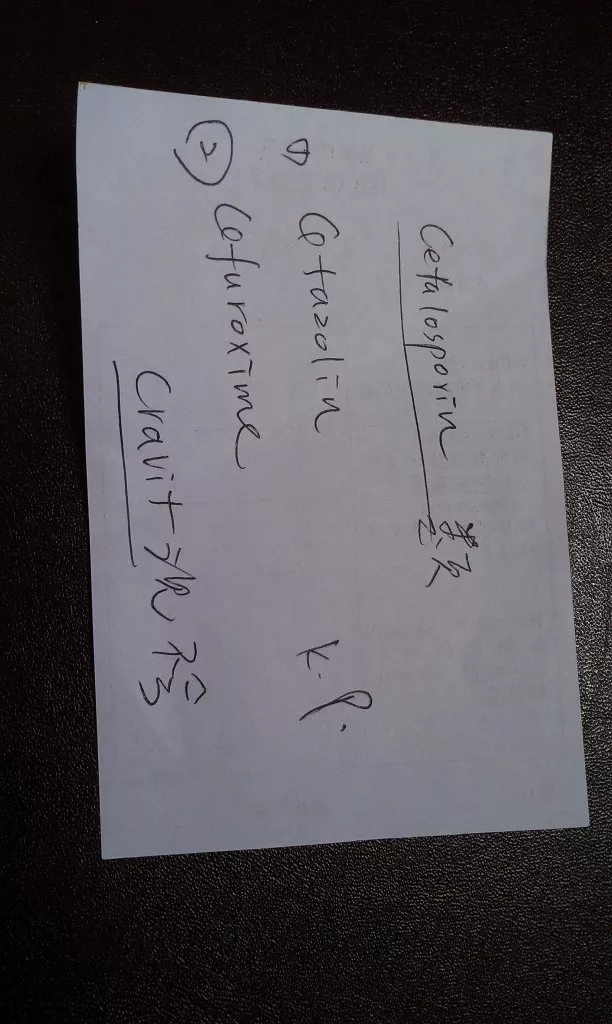 Cefalosporin 類
① Cefazolin K.P.
② Cefuroxime
Cravit